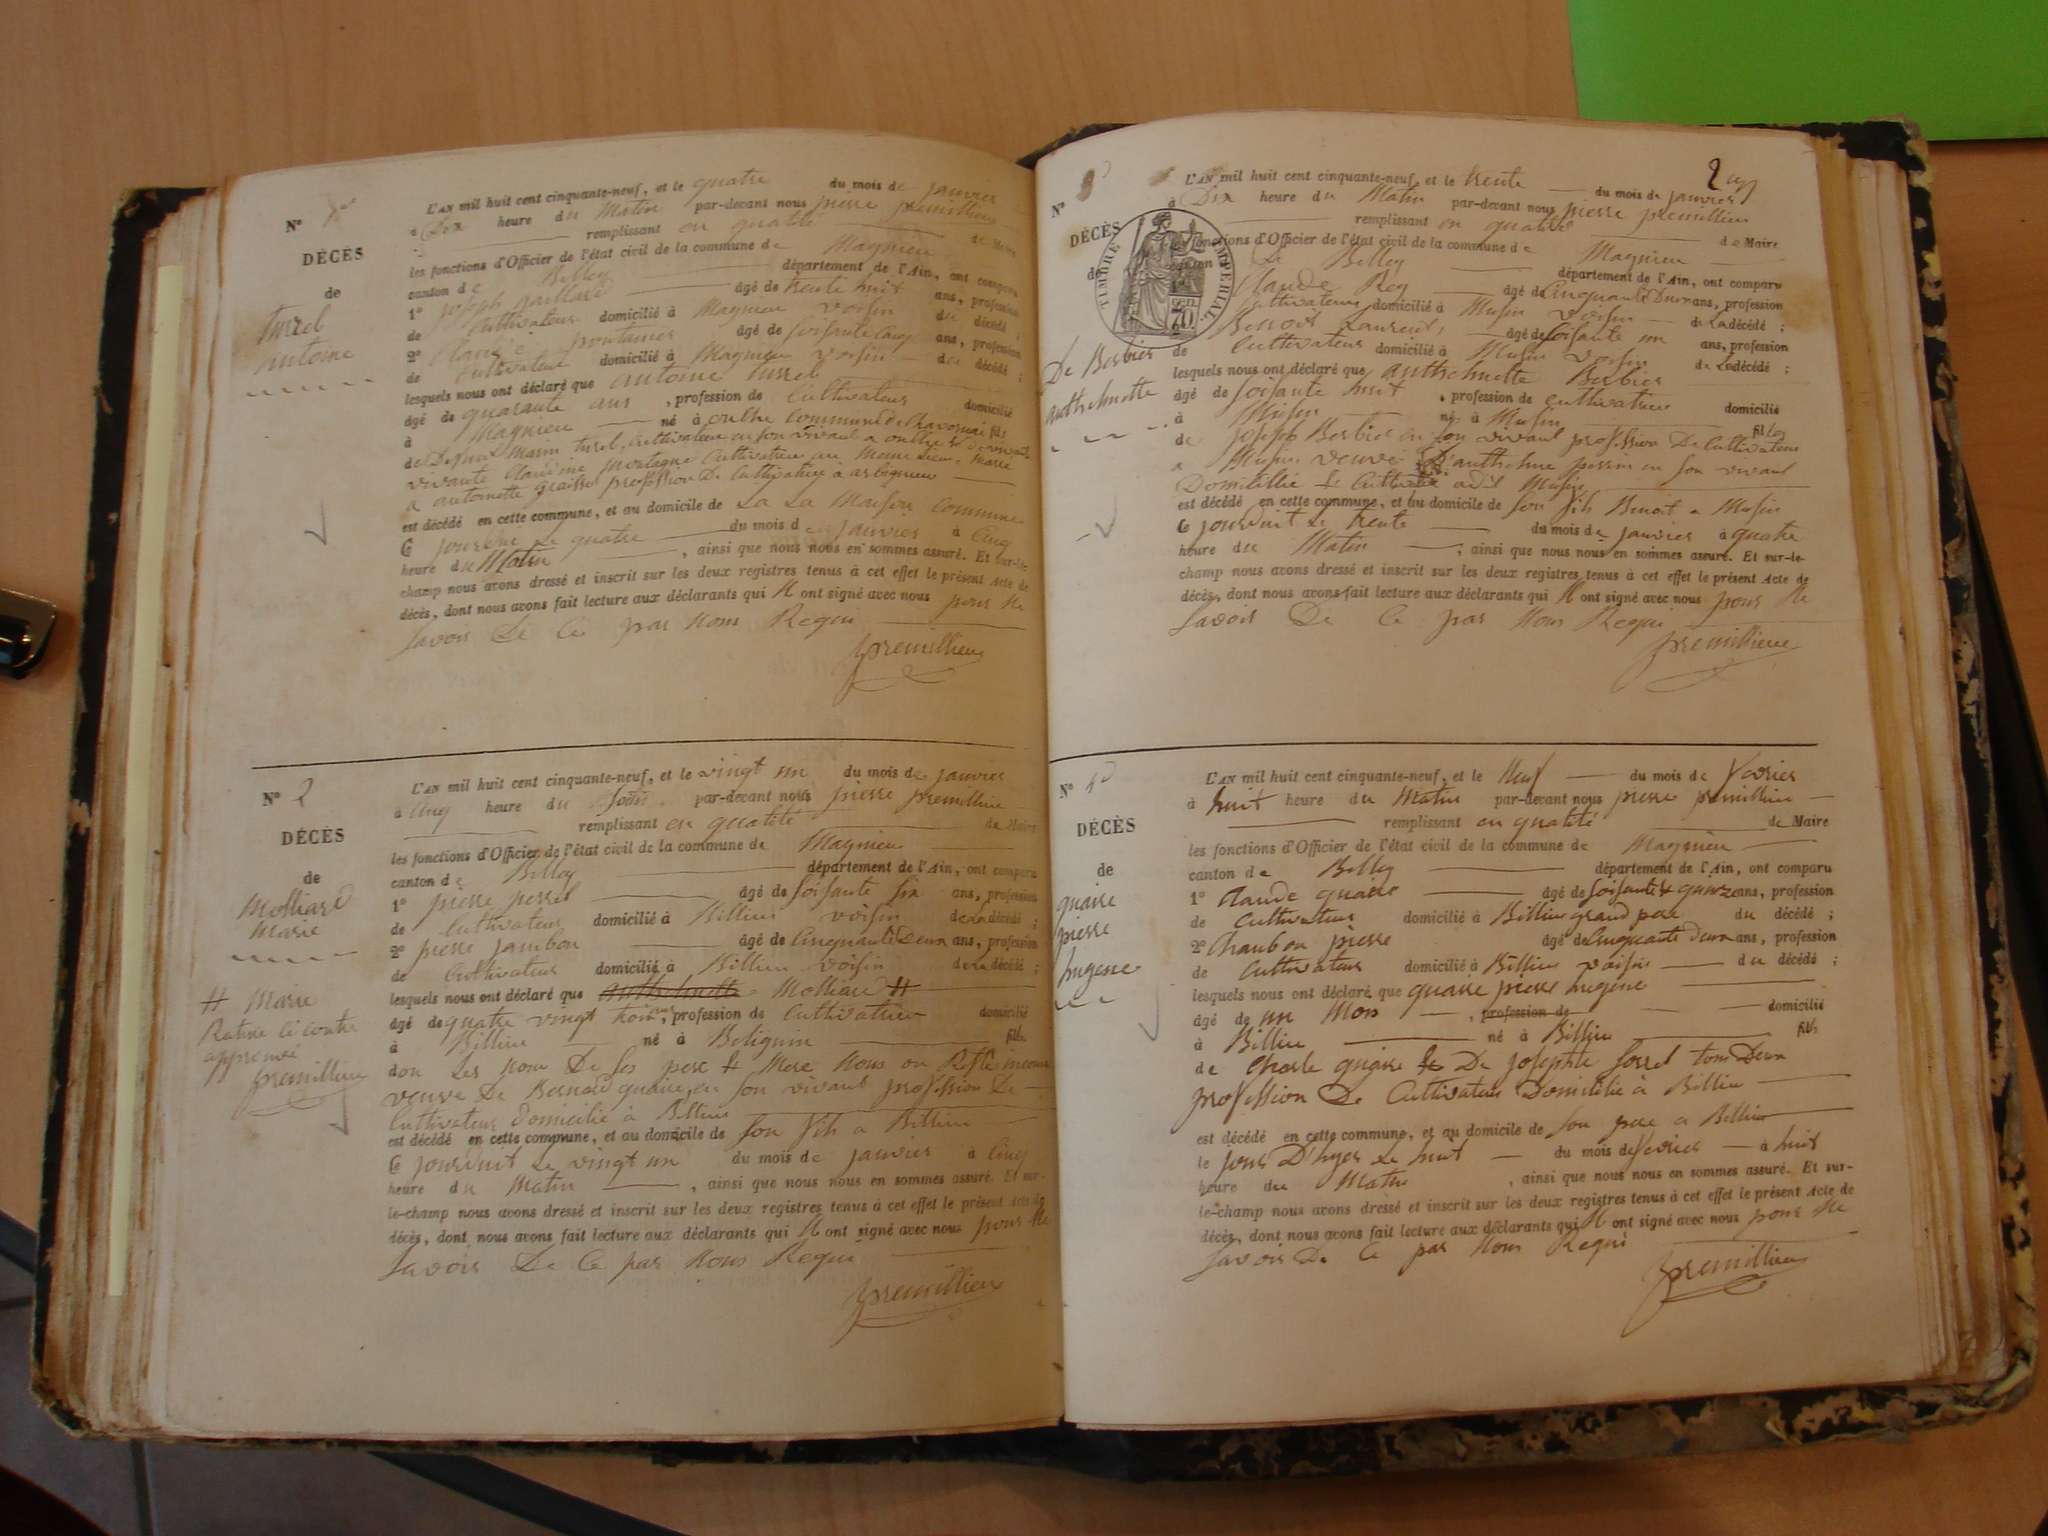 Nº 1er
DÉCÈS
de
Turel
antoine
L'AN mil huit cent cinquante-neuf, et le quatre du mois de janvier
à Dix heure du Matin par-devant nous pierre premillieu
remplissant en qualité de Maire
les fonctions d'Officier de l'état civil de la commune de Magnieu
canton de Belley département de l'Ain, ont comparu
1º joseph gaillard âgé de trente huit ans, profession
de Cultivateur domicilié à Magnieu voisin du décédé
2º Claude pontanier âgé de soisante Cinq ans, profession
de Cultivateur domicilié à Magnieu voisin du décédé ;
lesquels nous ont déclaré que antoine turrel
âgé de quarante ans , profession de Cultivateur domicilié
à Magnieu né à onthre commune de Chavornai fils
de Defunt Marin turel, Cultivateur en son vivant a onthre
vivante Claudine montagne Cultivatrice au meme Lieu. Marie
a antoinette graisse profession De Cultivatrice à arbignieu
est décédé en cette commune, et au domicile de La La Maison Commune
Ce jourduit Le quatre du mois de janvier à Cinq
heure du Matin , ainsi que nous nous en sommes assuré. Et sur-le-
champ nous avons dressé et inscrit sur les deux registres tenus à cet effet le présent acte de
décès, dont nous avons fait lecture aux déclarants qui N ont signé avec nous pour Ne
Savoir De Ce par Nous Requi
premillieu
Nº 2
DÉCÈS
de
Molliard
Marie
# Marie
Rature Ci contre
approuvé
premillieu
L'AN mil huit cent cinquante-neuf, et le vingt un du mois de janvier
à Cinq heure du Soir par-devant nous pierre premillieu
remplissant en qualité de Maire
les fonctions d'Officier de l'état civil de la commune de Magnieu
canton de Belley département de l'Ain, ont comparu
1º pierre perret âgé de soisante six ans, profession
de Cultivateur domicilié à Billieu voisin de La décédé ;
2º pierre jambon âgé de Cinquante Deux ans, profession
de Cultivateur domicilié à Billieu voisin de La décédé ;
lesquels nous ont déclaré que anthelmette Molliard #
âgé de quatre vingt trois ans, profession de Cultivatrice domicilié
à Billieu né à Bolignin fille
don Les nom De Ses pere & Mere Nous on Resté inconu
veuve De Bernard quaire, en son vivant profession De
Cultivateur Domicilié à Billieu
est décédé en cette commune, et au domicile de son fils a Billieu
Ce jourduit Le vingt un du mois de janvier à Cinq
heure du Matin , ainsi que nous nous en sommes assuré. Et sur-
le-champ nous avons dressé et inscrit sur les deux registres tenus à cet effet le présent acte de
décès, dont nous avons fait lecture aux déclarants qui N ont signé avec nous pour Ne
Savoir De Ce par Nous Requi
premillieu
2
Nº 3
DÉCÈS
de
De Berbier
anthelmette
TIMBRE IMPERIAL
L'AN mil huit cent cinquante-neuf, et le trente du mois de janvier
à Dix heure du Matin par-devant nous pierre premillieu
remplissant en qualité de Maire
les fonctions d'Officier de l'état civil de la commune de Magnieu
canton de Belley département de l'Ain, ont comparu
Claude Rey âgé de Cinquante Deux ans, profession
Cultivateur domicilié à Musin voisin de La décédé ;
Benoit Laurent âgé de soisante un ans, profession
de Cultivateur domicilié à Musin voisin de La décédé ;
lesquels nous ont déclaré que anthelmette Berbier
âgé de soisante huit , profession de Cultivatrice domicilié
à Musin né à Musin fille
de joseph Berbier en son vivant profession De Cultivateur
a Musin veuve D'anthelme perrin en son vivant
Domicilié & Cultivateur adit Musin
est décédé en cette commune, et au domicile de son fils Benoit a Musin
Ce jourduit Le trente du mois de janvier à quatre
heure du Matin , ainsi que nous nous en sommes assuré. Et sur-le-
champ nous avons dressé et inscrit sur les deux registres tenus à cet effet le présent acte de
décès, dont nous avons fait lecture aux déclarants qui N ont signé avec nous pour Ne
Savoir De Ce par Nous Requi
premillieu
Nº 4
DÉCÈS
de
quaire
pierre
hugene
L'AN mil huit cent cinquante-neuf, et le Neuf du mois de fevrier
à huit heure du Matin par-devant nous pierre premillieu
remplissant en qualité de Maire
les fonctions d'Officier de l'état civil de la commune de Magnieu
canton de Belley département de l'Ain, ont comparu
1º Claude quaire âgé de soisante & quinze ans, profession
de Cultivateur domicilié à Billieu grand pere du décédé ;
2º Chambon pierre âgé de Cinquante Deux ans, profession
de Cultivateur domicilié à Billieu voisin du décédé ;
lesquels nous ont déclaré que quaire pierre hugene
âgé de un Mois , profession de domicilié
à Billieu né à Billieu fils
de Charle quaire & De josephte sorrel tous Deux
profession De Cultivateur Domicilié à Billieu
est décédé en cette commune, et au domicile de son pere a Billieu
le jour D'hyer Le huit du mois de fevrier à huit
heure du Matin , ainsi que nous nous en sommes assuré. Et sur-
le-champ nous avons dressé et inscrit sur les deux registres tenus à cet effet le présent acte de
décès, dont nous avons fait lecture aux déclarants qui N ont signé avec nous pour Ne
Savoir De Ce par Nous Requi
premillieu